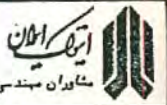 ایتوک ایران
مشاوران مهندسی